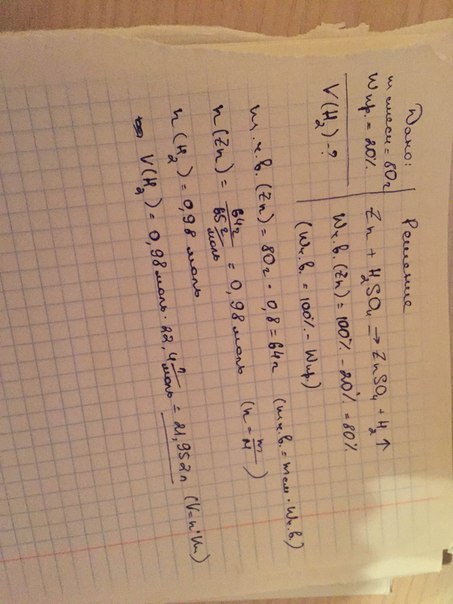 Дано:
m смеси = 80 г
W пр. = 20%
V(H₂) - ?
Решение
Zn + H₂SO₄ → ZnSO₄ + H₂↑
Wч.в. (Zn) = 100% - 20% = 80%
(Wч.в. = 100% - Wпр.)
mч.в. (Zn) = 80 г · 0,8 = 64 г (mч.в. = mсм · Wч.в.)
n(Zn) = 64 г / 65 г/моль = 0,98 моль (n = m/M)
n(H₂) = 0,98 моль
V(H₂) = 0,98 моль · 22,4 л/моль = 21,952 л (V = n·Vm)